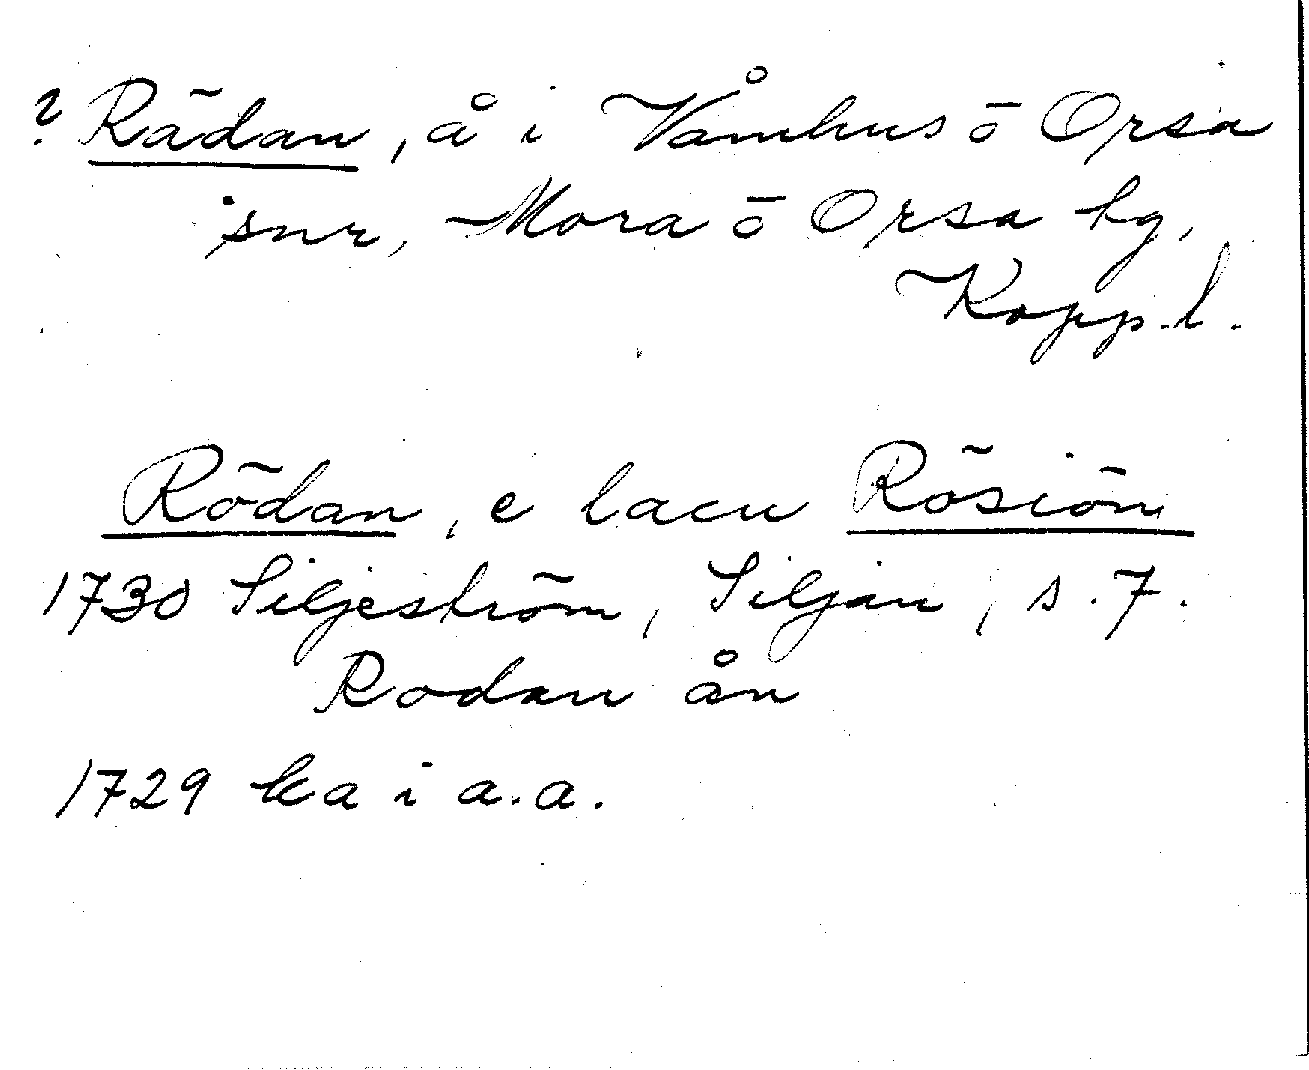 ? Rädan, å i Våmhus o Orsa
snr, Mora o Orsa hg,
Kopp.l.
Rödan, e lacu Rösiön
1730 Siljeström, Siljan, s. 7.
Rodan ån
1729 ka i a.a.